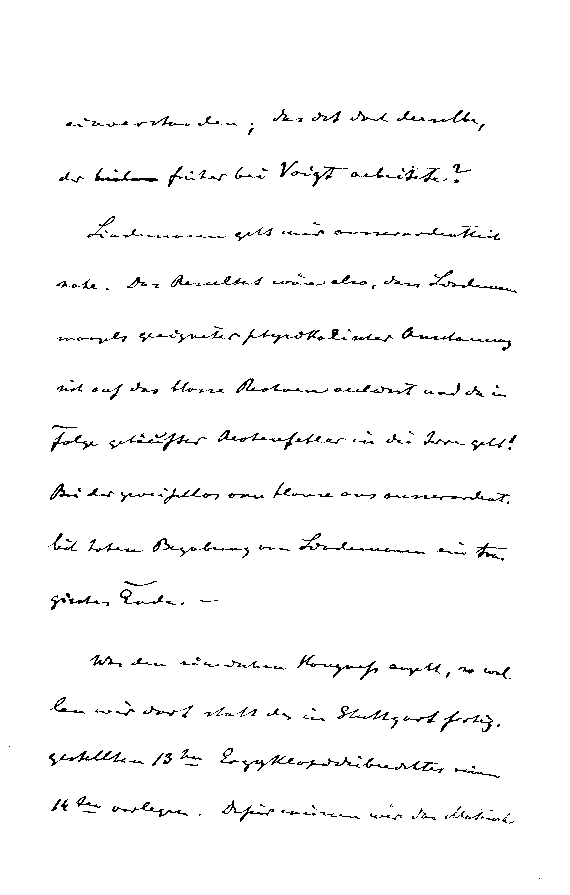 einverstanden; das ist doch derselbe,
der früher bei Voigt arbeitete?
Lindemann geht mir ausserordentlich
nahe. Das Resultat wäre also, dass Lindemann
mangels geeigneter physikalischer Anschauung
sich auf das blosse Rechnen und da in
Folge gehäufter Rechenfehler in die Irre geht!
Bei der zweifellos von Hause aus ausserordent-
lich hohen Begabung von Lindemann ein tra-
gisches Ende. —
Was den Kongress angeht, so wol-
len wir dort statt des in Stuttgart fertig-
gestellten 13ten Enzyklopädieberichtes einen
14ten vorlegen. Dafür müssen wir das